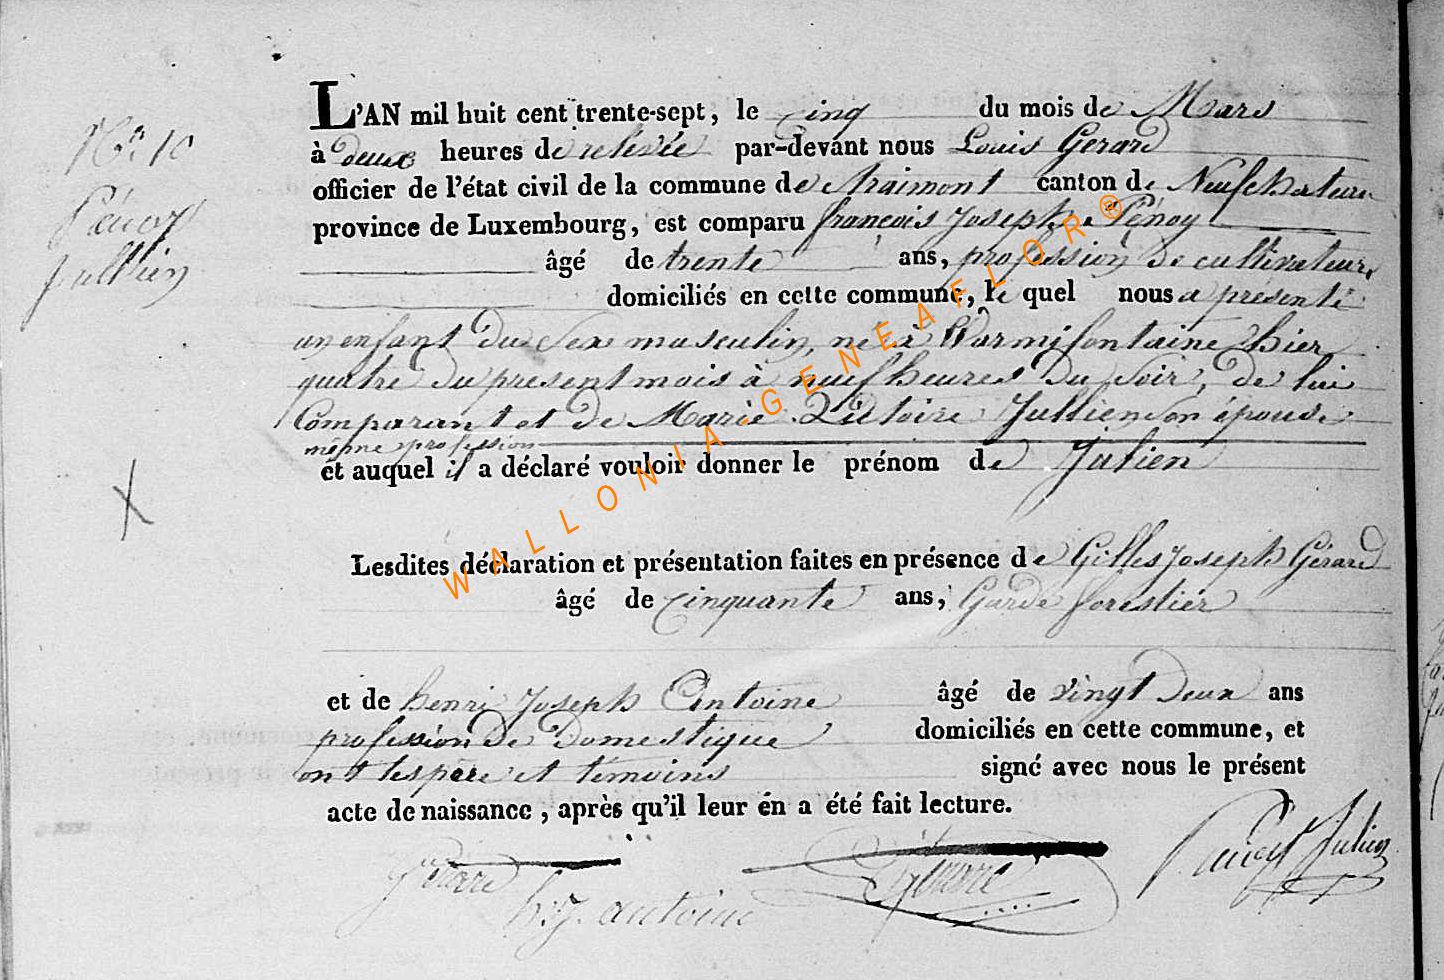 N° 10
Pénoy
Jullien
L'AN mil huit cent trente-sept, le cinq du mois de Mars
à deux heures de relevée par-devant nous Louis Gerard
officier de l'état civil de la commune de Straimont canton de Neufchateau
province de Luxembourg, est comparu françois Joseph Pénoy
âgé de trente ans, profession de cultivateur,
domiciliés en cette commune, le quel nous a présenté
un enfant du Sex masculin, né à Warmifontaine hier
quatre du present mois à neuf heures du Soir, de lui
Comparant et de Marie Victoire Jullien Son épouse
même profession
et auquel il a déclaré vouloir donner le prénom de Julien
Lesdites déclaration et présentation faites en présence de Gilles Joseph Gérard
âgé de cinquante ans, Garde forestier
et de henri Joseph Antoine âgé de vingt Deux ans
profession de Domestique domiciliés en cette commune, et
ont les père et témoins signé avec nous le présent
acte de naissance, après qu'il leur en a été fait lecture.
Gérard
h: J. antoine
Gérard
Penoy Julien
WALLONIA-GENEAFLOR®